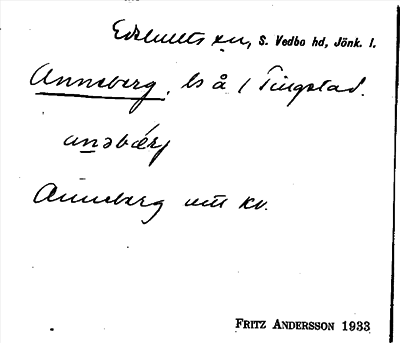 Edshults sn, S. Vedbo hd, Jönk. l.
Anneberg, ls å 1 Tingstad.
anəbærj
Anneberg utt kv.
FRITZ ANDERSSON 1933